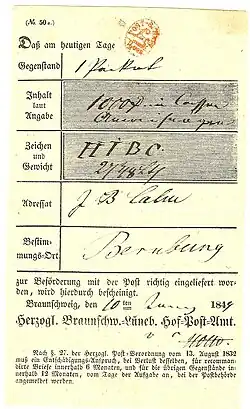 (№. 50 e.)
Daß am heutigen Tage
Gegenstand 1 Packet
Inhalt
laut
Angabe
1000
Zeichen
und
Gewicht
H I B C
Adressat J B Calm
Bestim-
mungs-Ort. Bernburg
zur Beförderung mit der Post richtig eingeliefert wor-
den, wird hierdurch bescheinigt.
Braunschweig, den 10 ten 18
Herzogl. Braunschw.-Lüneb. Hof-Post-Amt.
Nach §. 27. der Herzogl. Post-Verordnung vom 13. August 1832
muß ein Entschädigungs-Anspruch, bei Verlust desselben, für recomman-
dirte Briefe innerhalb 6 Monaten, und für die übrigen Gegenstände inner-
halb 12 Monaten, vom Tage der Aufgabe an, bei der Postbehörde
angemeldet werden.